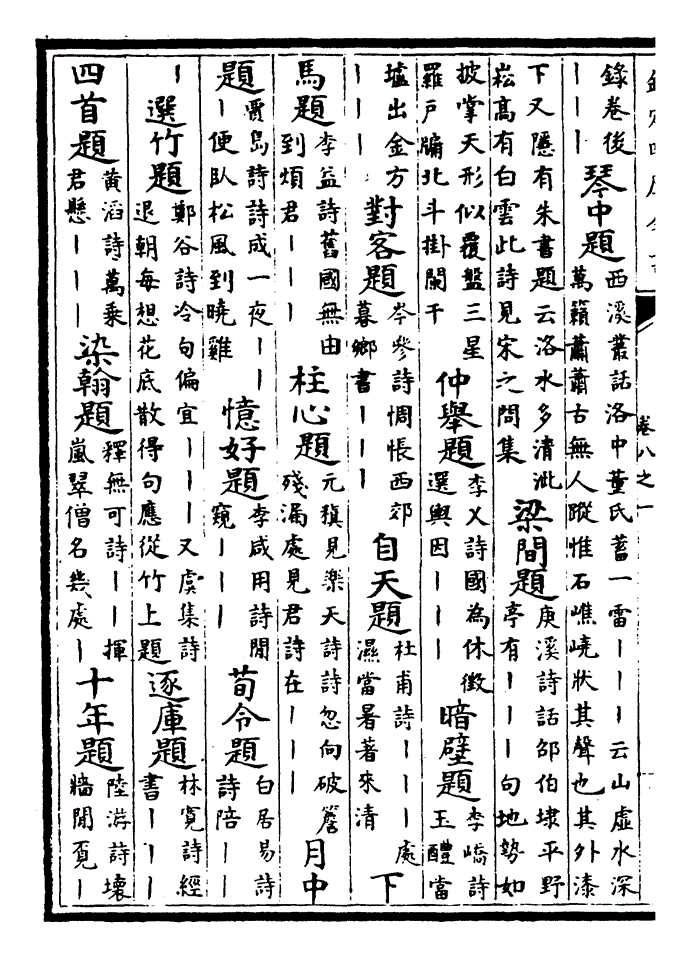 卷八之一
錄卷後｜｜｜琴中題西溪叢話洛中董氏蓄一雷｜｜｜云山虛水深萬籟蕭蕭古無人蹤惟石嶕嶢狀其聲也其外漆
下又隱有朱書題云洛水多清泚崧高有白雲此詩見宋之問集梁間題庚溪詩話邵伯埭平野亭有｜｜｜句地勢如
披掌天形似覆盤三星羅戶牖北斗掛闌干仲舉題李乂詩國為休徵選輿因｜｜｜暗壁題李嶠詩玉醴當
壚出金方｜｜｜對客題岑參詩惆悵西郊暮鄉書｜｜｜自天題杜甫詩｜｜｜處濕當暑著來清下
馬題李益詩舊國無由到煩君｜｜｜柱心題元稹見樂天詩詩忽向破簷殘漏處見君詩在｜｜｜月中
題賈島詩詩成一夜｜｜｜便臥松風到曉雞憶好題李咸用詩閒窺｜｜｜荀令題白居易詩詩陪｜｜
｜選竹題鄭谷詩冷句偏宜｜｜｜又虞集詩退朝每想花底散得句應從竹上題逐庫題林寬詩經書｜｜｜
四首題黃滔詩萬乘君懸｜｜｜染翰題釋無可詩｜｜揮嵐翠僧名幾處｜十年題陸游詩壞牆閒覓｜